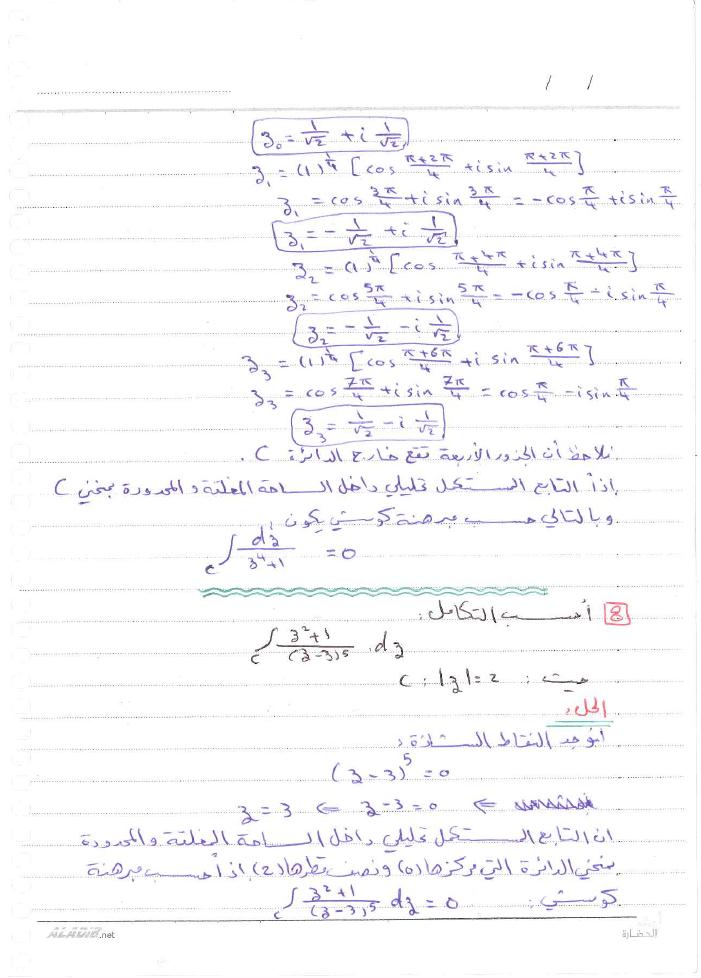 / /
z₀ = 1/√2 + i 1/√2
z₁ = (1)^¼ [cos (π+2π)/4 + i sin (π+2π)/4]
z₁ = cos 3π/4 + i sin 3π/4 = -cos π/4 + i sin π/4
z₁ = - 1/√2 + i 1/√2
z₂ = (1)^¼ [cos (π+4π)/4 + i sin (π+4π)/4]
z₂ = cos 5π/4 + i sin 5π/4 = -cos π/4 - i sin π/4
z₂ = - 1/√2 - i 1/√2
z₃ = (1)^¼ [cos (π+6π)/4 + i sin (π+6π)/4]
z₃ = cos 7π/4 + i sin 7π/4 = cos π/4 - i sin π/4
z₃ = 1/√2 - i 1/√2
نلاحظ أن الجذور الأربعة تقع خارج الدائرة C .
إذاً التابع المستكمل تحليلي داخل الساحة المغلقة والمحدودة بمنحني C
وبالتالي حسب مبرهنة كوشي يكون :
c∫ dz/(z⁴+1) = 0
8 أحسب التكامل :
c∫ (z²+1)/(z-3)⁵ . dz
حيث : C : |z| = 2
الحل :
نوجد النقاط الشاذة :
(z-3)⁵ = 0
⇐ z-3=0 ⇐ z=3
ان التابع المستكمل تحليلي داخل الساحة المغلقة والمحدودة
بمنحني الدائرة التي مركزها (0) ونصف قطرها (2) إذاً حسب مبرهنة
كوشي : c∫ (z²+1)/(z-3)⁵ dz = 0
ALADIB.net
الحضارة